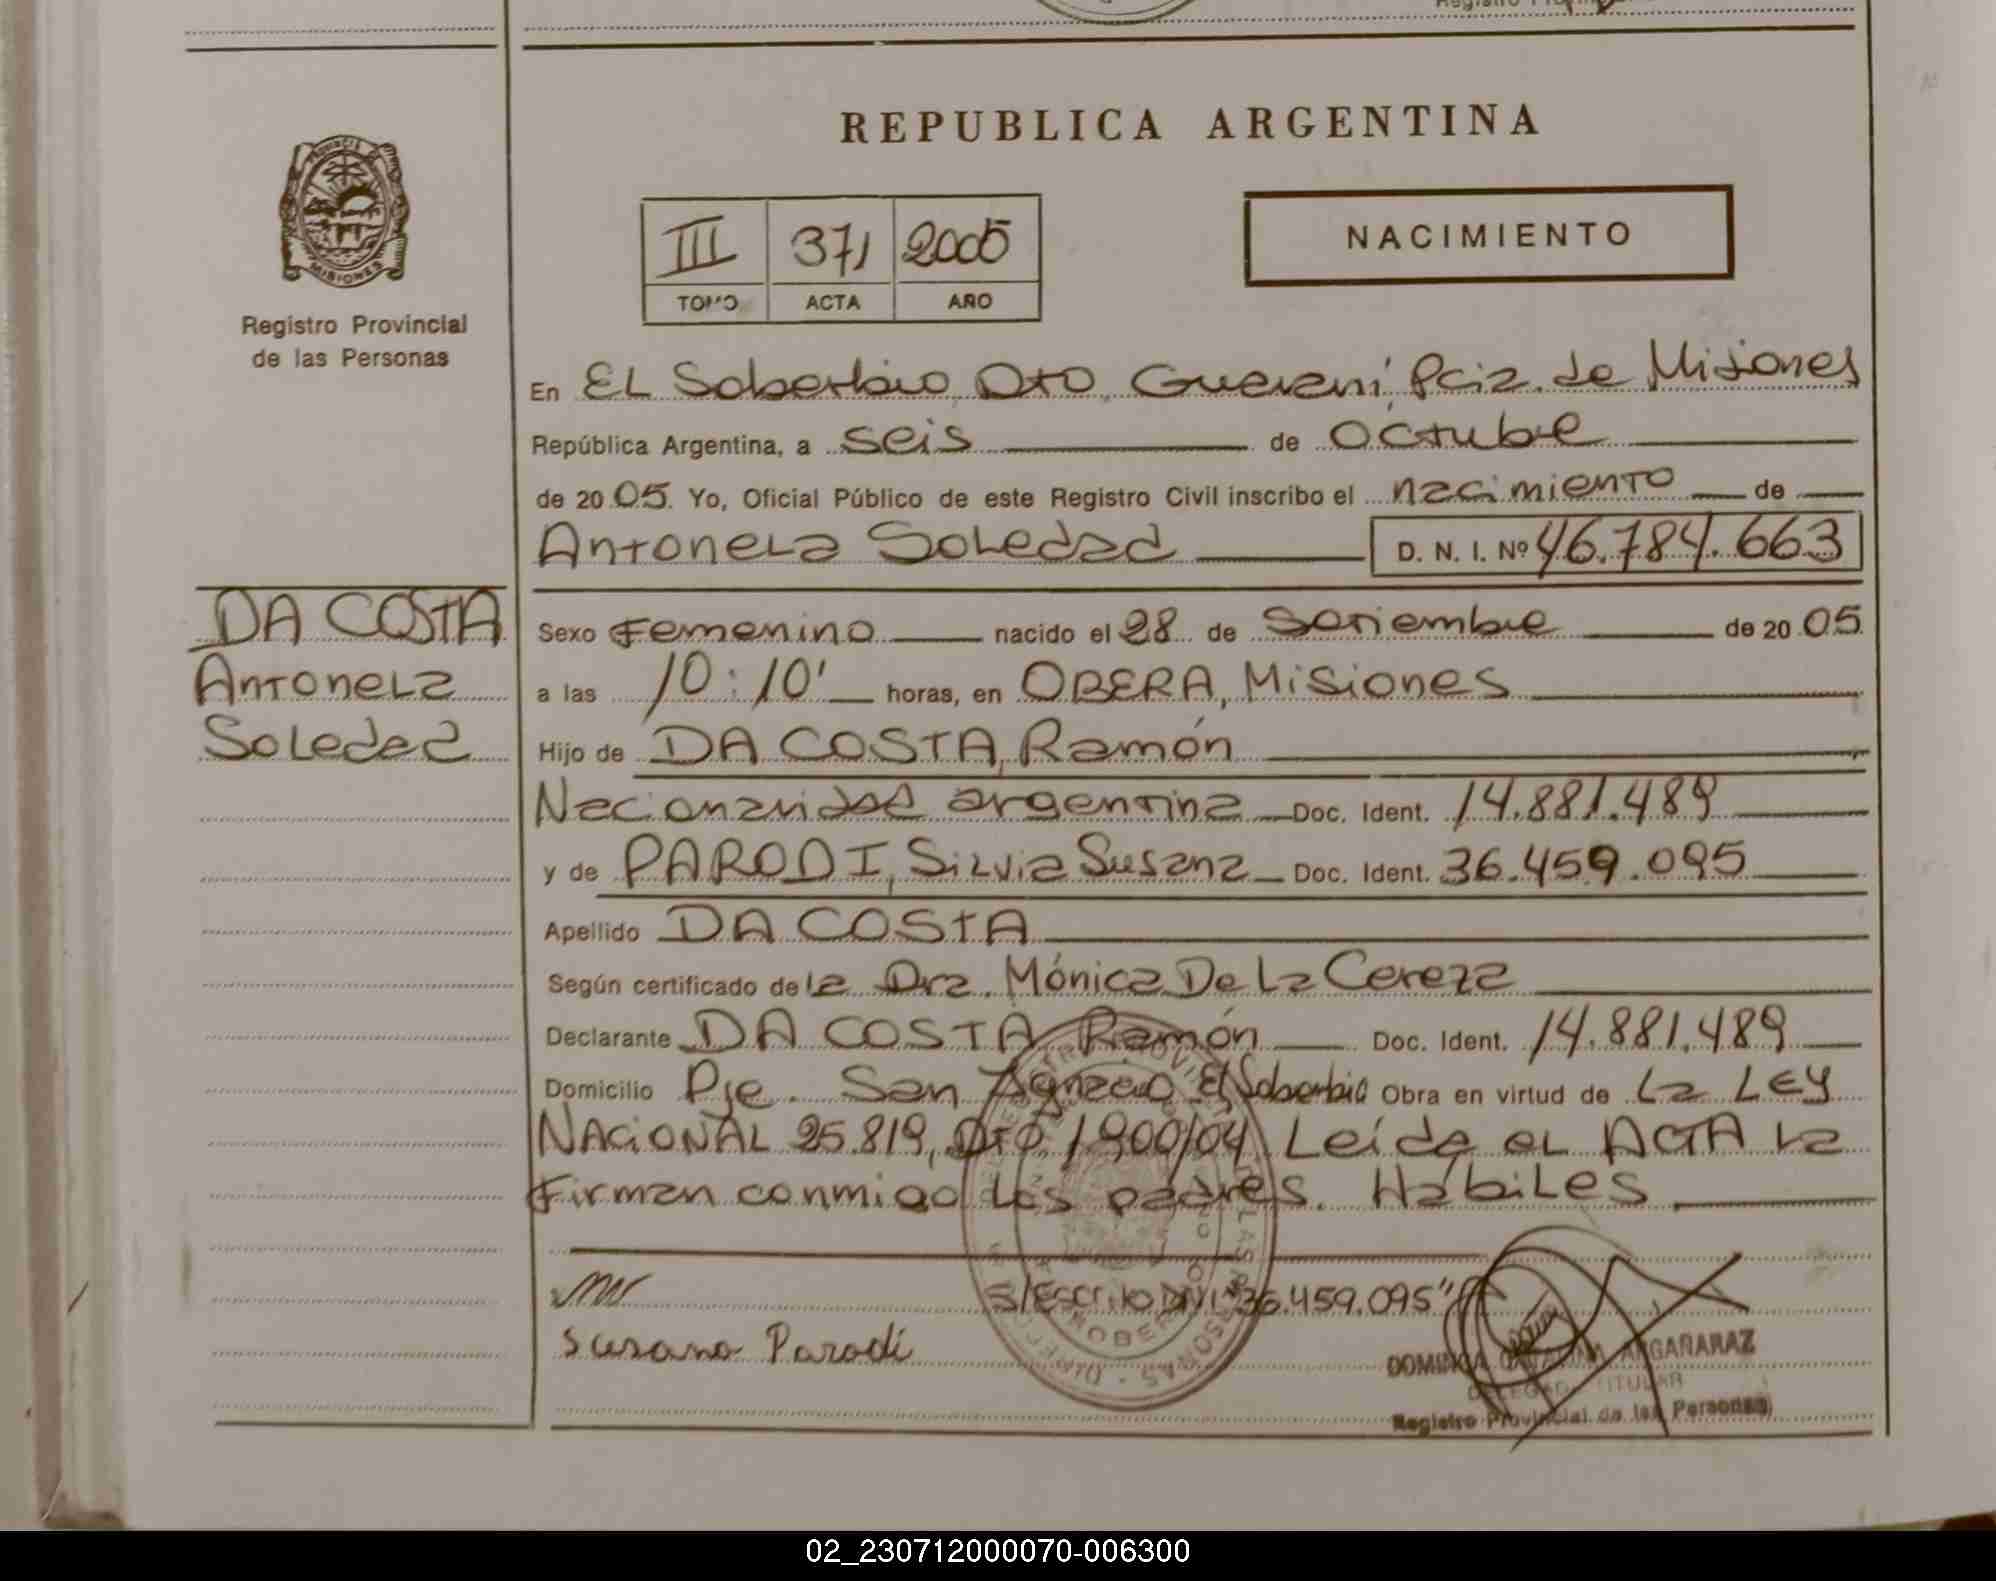 REPUBLICA ARGENTINA
PROVINCIA DE
MISIONES
Registro Provincial
de las Personas
III 371 2005
TOMO ACTA AÑO
NACIMIENTO
En EL Soberbio, Dto, Guaraní, Pcia. de Misiones
República Argentina, a seis de octubre
de 2005. Yo, Oficial Público de este Registro Civil inscribo el nacimiento de
Antonela Soledad D. N. I. Nº 46.784.663
DA COSTA
Antonela
Soledad
Sexo Femenino nacido el 28 de Setiembre de 2005
a las 10:10' horas, en OBERA, Misiones
Hijo de DA COSTA, Ramón
Nacionalidad argentina Doc. Ident. 14.881.489
y de PARODI, Silvia Susana Doc. Ident. 36.459.095
Apellido DA COSTA
Según certificado de la Dra. Mónica De La Cereza
Declarante DA COSTA Ramón Doc. Ident. 14.881.489
Domicilio Pje. San Ignacio El Soberbio Obra en virtud de La LEY
NACIONAL 25.819, DTO. 1900/04 Leída el ACTA la
firman conmigo los padres. Hábiles
S/Escrito DNI "36.459.095"
Susana Parodi
ARGAÑARAZ
DELEGADA TITULAR
Registro Provincial de las Personas
02_230712000070-006300